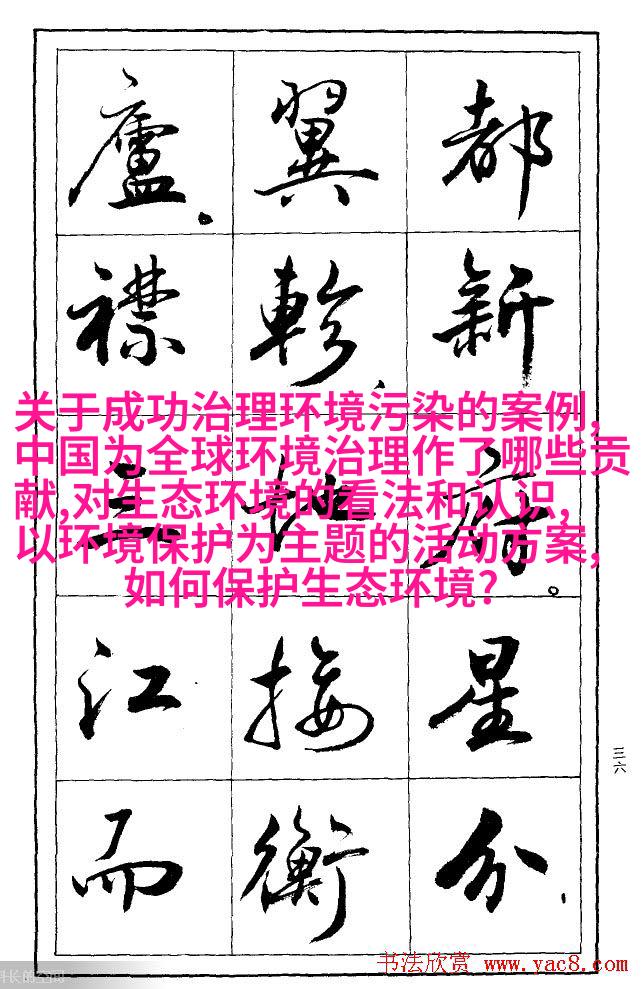 都新府。星分、
翼軫、地接衡
廬。襟三江而
三六
关于成功治理环境污染的案例,
中国为全球环境治理作了哪些贡
献,对生态环境的看法和认识,
以环境保护为主题的活动方案,
如何保护生态环境?
书法欣赏 www.yac8.com
长的空间